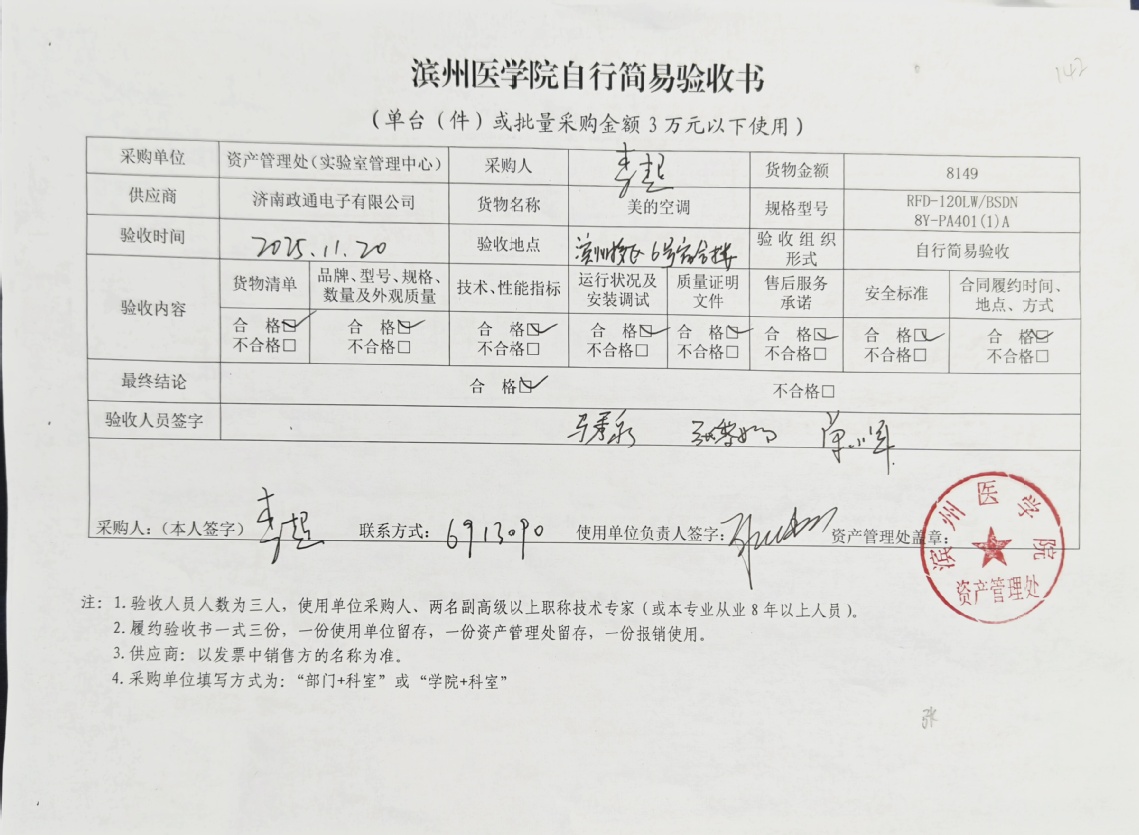 142
滨州医学院自行简易验收书
(单台(件)或批量采购金额3万元以下使用)
采购单位 资产管理处(实验室管理中心) 采购人 货物金额 8149
供应商 济南政通电子有限公司 货物名称 美的空调 规格型号 RFD-120LW/BSDN
8Y-PA401(1)A
验收时间 2025.11.20 验收地点 滨州校区6号宿舍楼 验收组织
形式 自行简易验收
验收内容 货物清单 品牌、型号、规格、
数量及外观质量 技术、性能指标 运行状况及
安装调试 质量证明
文件 售后服务
承诺 安全标准 合同履约时间、
地点、方式
合 格☑ 合 格☑ 合 格☑ 合 格☑ 合 格☑ 合 格☑ 合 格☑ 合 格☑
不合格□ 不合格□ 不合格□ 不合格□ 不合格□ 不合格□ 不合格□ 不合格□
最终结论 合 格☑ 不合格□
验收人员签字
采购人:(本人签字) 联系方式: 6913090 使用单位负责人签字: 资产管理处盖章:
滨州医学院
资产管理处
注: 1.验收人员人数为三人,使用单位采购人、两名副高级以上职称技术专家(或本专业从业8年以上人员)。
2.履约验收书一式三份,一份使用单位留存,一份资产管理处留存,一份报销使用。
3.供应商:以发票中销售方的名称为准。
4.采购单位填写方式为:“部门+科室”或“学院+科室”
张